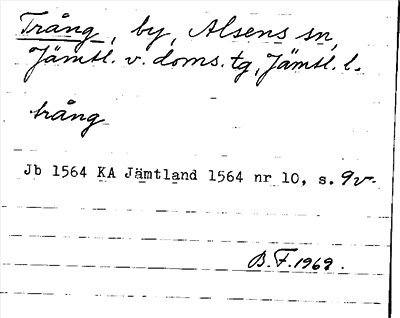 Trång, by, Alsens sn,
Jämtl. v. doms. tg, Jämtl. l.
trång
Jb 1564 KA Jämtland 1564 nr 10, s. 9v
B.F. 1969.